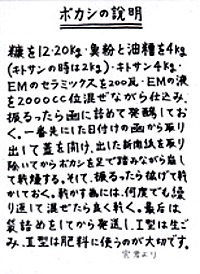 ボカシの説明
糠を12·20kg·魚粉と油糟を4kg
(キトサンの時は2kg)·キトサン4kg·
EMのセラミックスを200瓦·EMの液
を2000CC位混ぜながら仕込み、
振るったら函に詰めて発酵してお
く。一番先に1た日付けの函から取り
出して蓋を開け、出した新聞紙を取り
除いてからボカシを足で踏みながら崩し
て乾燥する。そして、振るったら拡げて乾
かしておく。乾かす為には、何度でも繰
り返して混ぜたら良く乾く。最后は
袋詰めをしてから発送し、I型は生ご
み、II型は肥料に使うのが大切です。
より